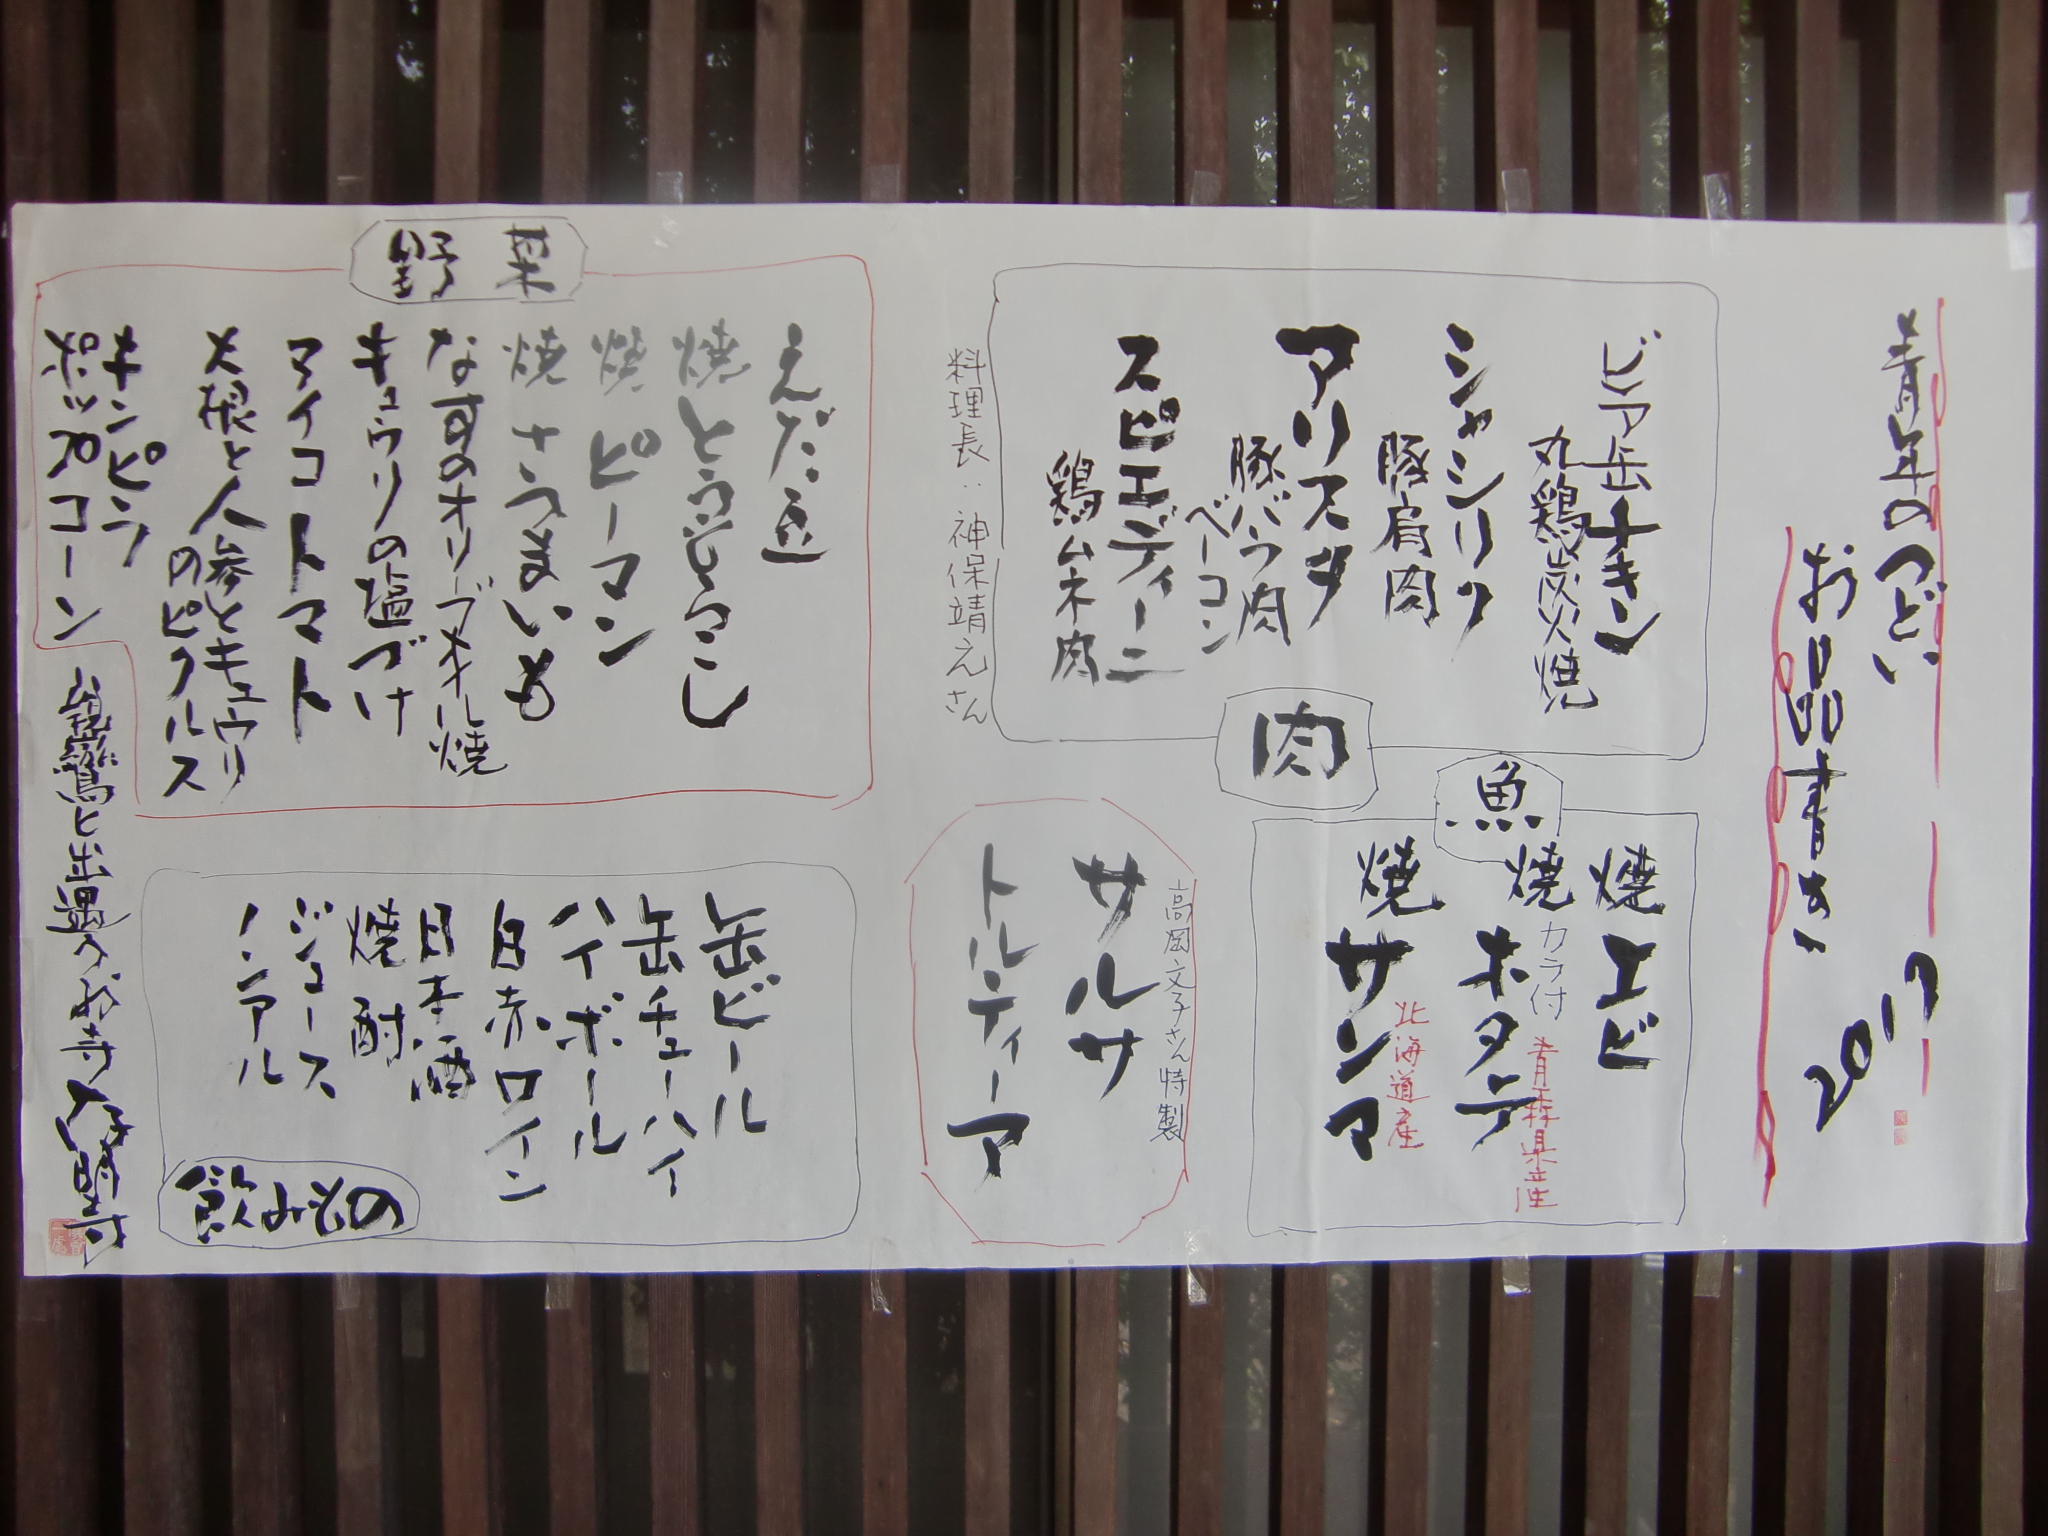 青年のつどい
お品書き
2017
肉
ビア缶チキン
丸鶏炭火焼
シャシリク
豚肩肉
アリスタ
豚バラ肉
ベーコン
スピエディーニ
鶏ムネ肉
料理長：神保靖元さん
魚
焼エビ
焼ホタテ
カラ付
青森県産
焼サンマ
北海道産
高岡文子さん特製
サルサ
トルティーア
野菜
えだ豆
焼とうもろこし
焼ピーマン
焼さつまいも
なすのオリーブオイル焼
キュウリの塩づけ
マイコトマト
大根と人参とキュウリ
のピクルス
キンピラ
ポップコーン
飲みもの
缶ビール
缶チューハイ
ハイボール
白赤ワイン
日本酒
焼酎
ジュース
ノンアル
親鸞と出遇うお寺